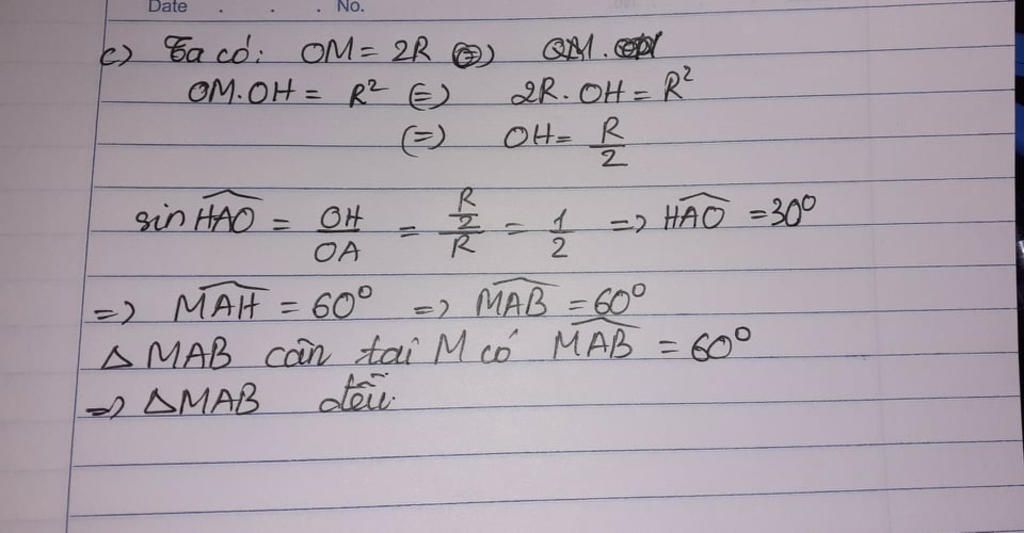 Date . . . No.
c) Ta có: OM = 2R (=) OM.
OM.OH = R² (=) 2R.OH = R²
(=) OH = R/2
sin HAO = OH/OA = (R/2)/R = 1/2 => HAO = 30⁰
=> MAH = 60⁰ => MAB = 60⁰
△ MAB cân tại M có MAB = 60⁰
=> △MAB đều.